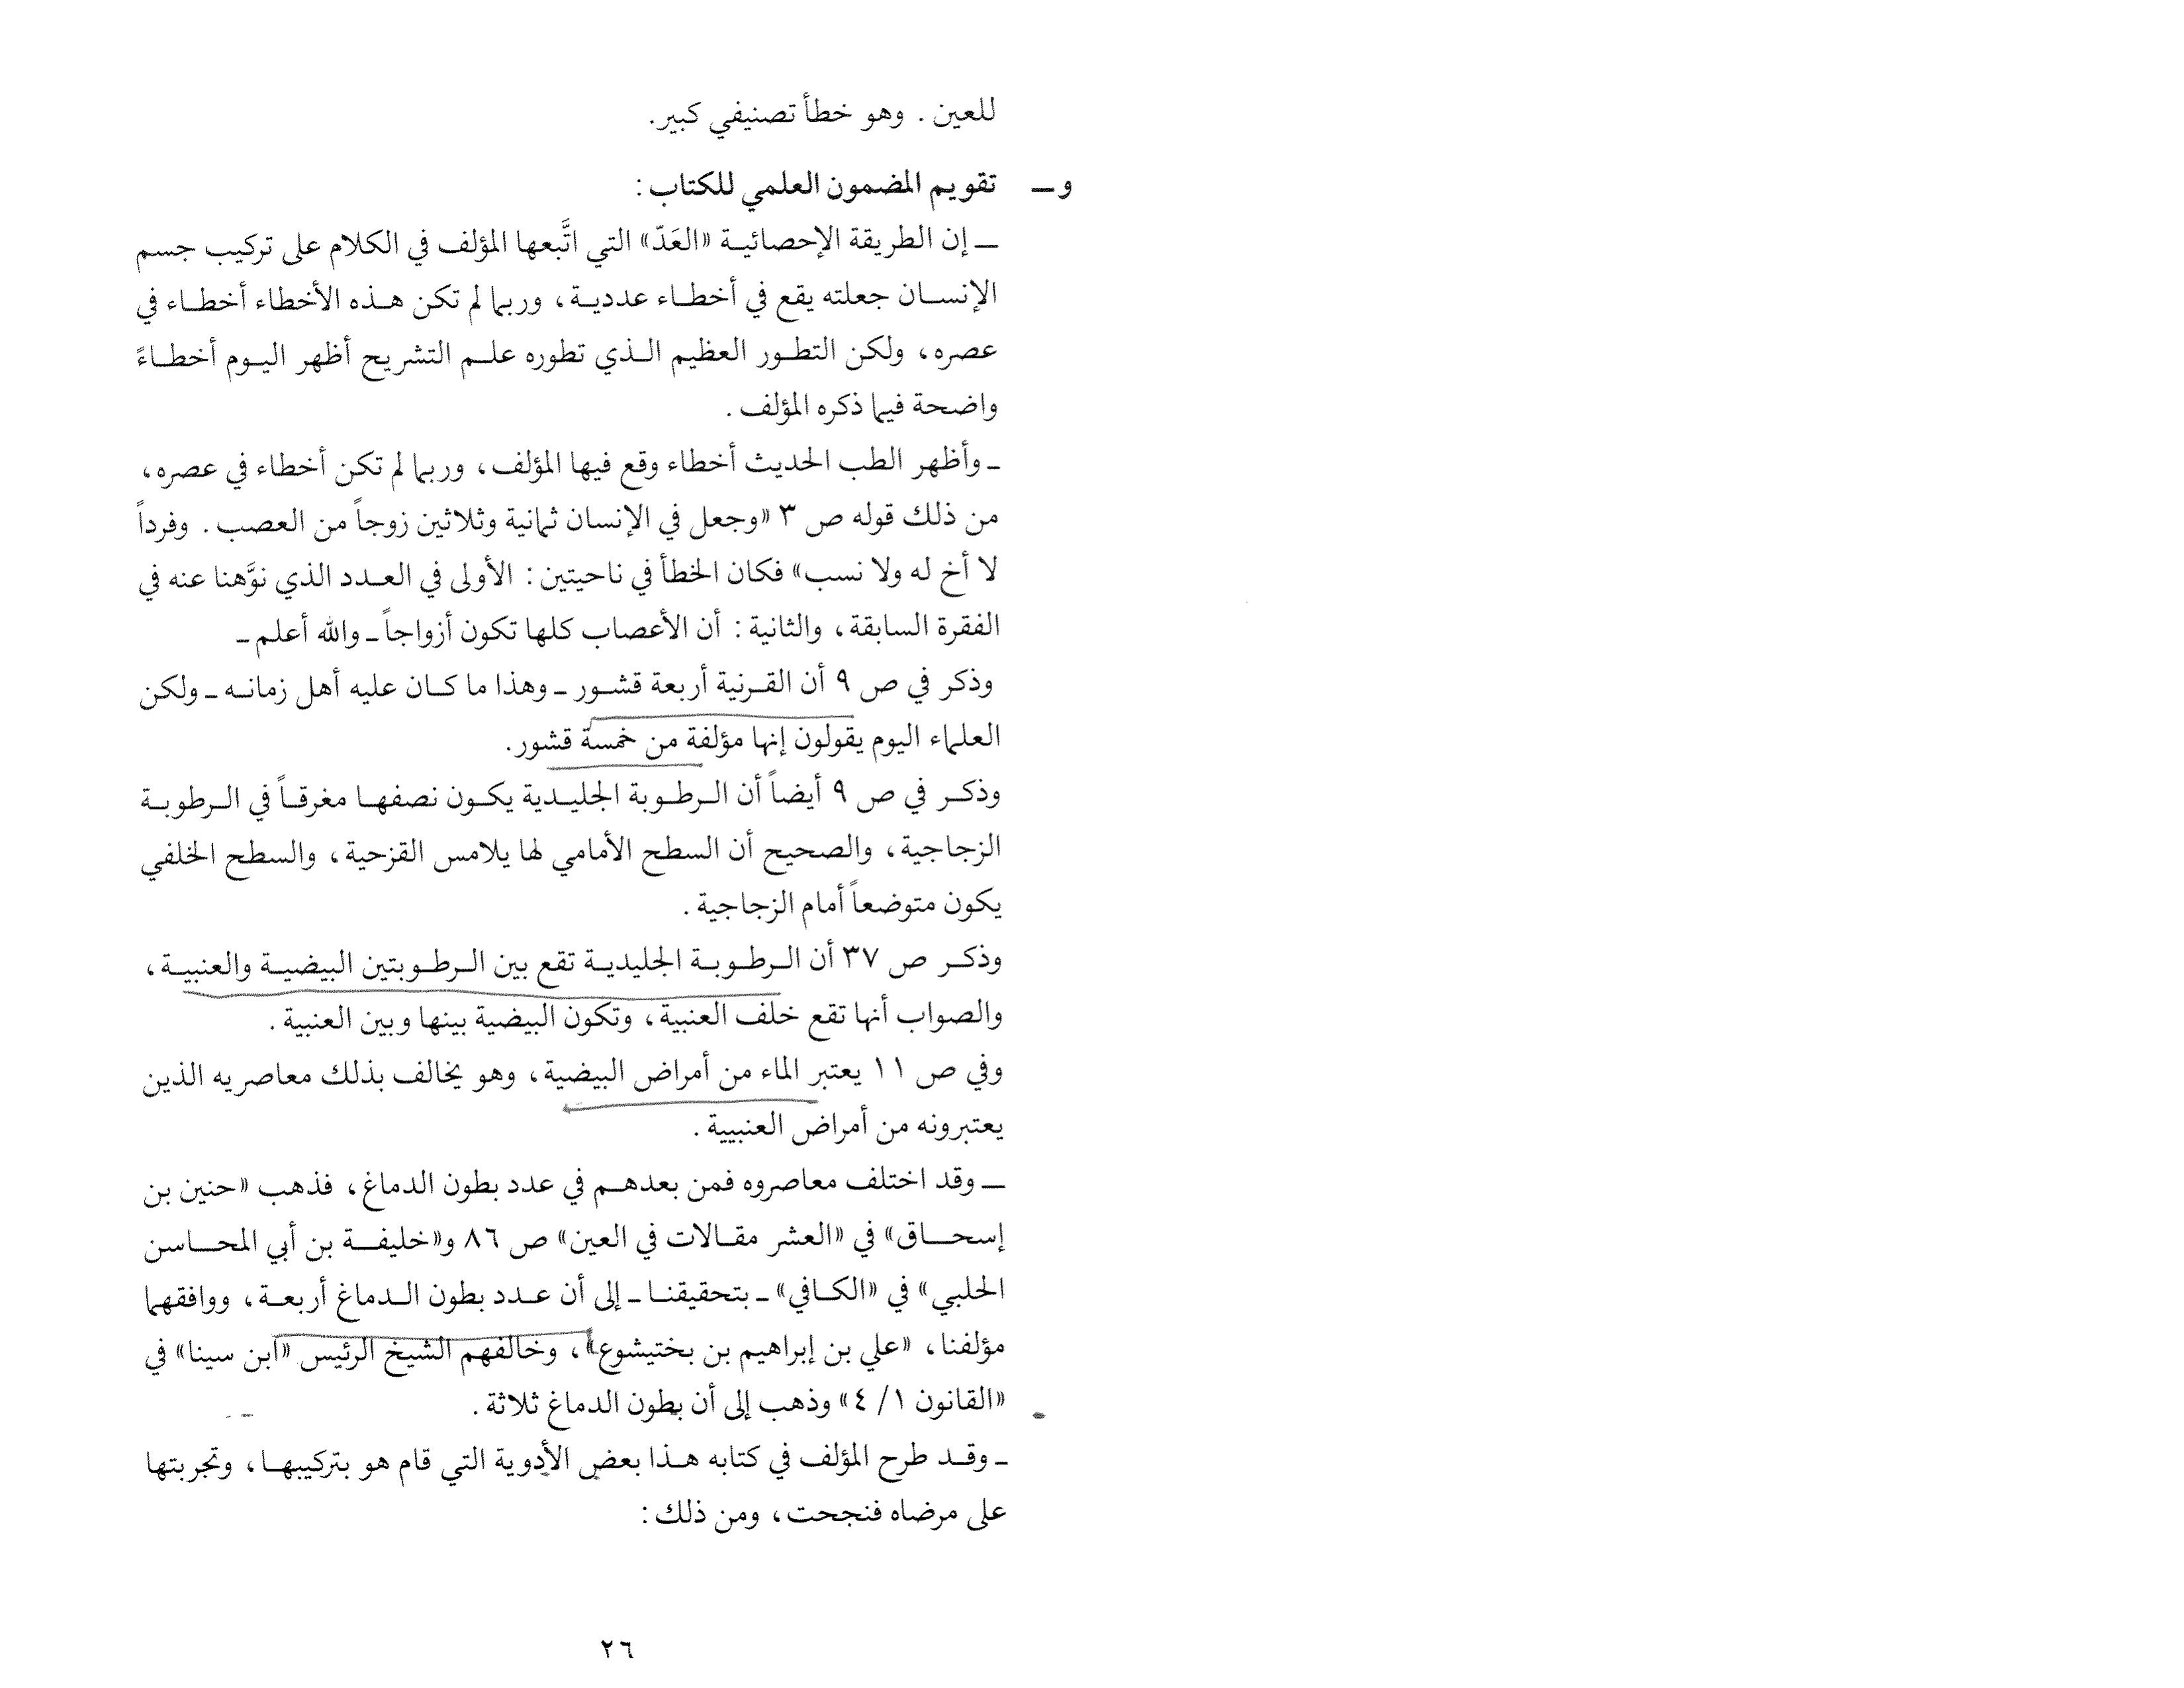 للعين . وهو خطأ تصنيفي كبير.
و ــ تقويم المضمون العلمي للكتاب :
ــ إن الطريقة الإحصائية «العَدّ» التي اتَّبعها المؤلف في الكلام على تركيب جسم
الإنسان جعلته يقع في أخطاء عددية، وربما لم تكن هذه الأخطاء أخطاء في
عصره، ولكن التطور العظيم الذي تطوره علم التشريح أظهر اليوم أخطاءً
واضحة فيما ذكره المؤلف .
ـ وأظهر الطب الحديث أخطاء وقع فيها المؤلف، وربما لم تكن أخطاء في عصره،
من ذلك قوله ص ٣ «وجعل في الإنسان ثمانية وثلاثين زوجاً من العصب . وفرداً
لا أخ له ولا نسب» فكان الخطأ في ناحيتين : الأولى في العدد الذي نوَّهنا عنه في
الفقرة السابقة، والثانية : أن الأعصاب كلها تكون أزواجاً ـ والله أعلم ـ
وذكر في ص ٩ أن القرنية أربعة قشور ـ وهذا ما كان عليه أهل زمانه ـ ولكن
العلماء اليوم يقولون إنها مؤلفة من خمسة قشور.
وذكر في ص ٩ أيضاً أن الرطوبة الجليدية يكون نصفها مغرقاً في الرطوبة
الزجاجية، والصحيح أن السطح الأمامي لها يلامس القزحية، والسطح الخلفي
يكون متوضعاً أمام الزجاجية .
وذكر ص ٣٧ أن الرطوبة الجليدية تقع بين الرطوبتين البيضية والعنبية،
والصواب أنها تقع خلف العنبية، وتكون البيضية بينها وبين العنبية .
وفي ص ١١ يعتبر الماء من أمراض البيضية، وهو يخالف بذلك معاصريه الذين
يعتبرونه من أمراض العنبيية .
ــ وقد اختلف معاصروه فمن بعدهم في عدد بطون الدماغ، فذهب «حنين بن
إسحاق» في «العشر مقالات في العين» ص ٨٦ و«خليفة بن أبي المحاسن
الحلبي» في «الكافي» ـ بتحقيقنا ـ إلى أن عدد بطون الدماغ أربعة، ووافقهما
مؤلفنا، «علي بن إبراهيم بن بختيشوع»، وخالفهم الشيخ الرئيس «ابن سينا» في
«القانون ١/ ٤» وذهب إلى أن بطون الدماغ ثلاثة .
ـ وقد طرح المؤلف في كتابه هذا بعض الأدوية التي قام هو بتركيبها، وتجربتها
على مرضاه فنجحت، ومن ذلك :
٢٦